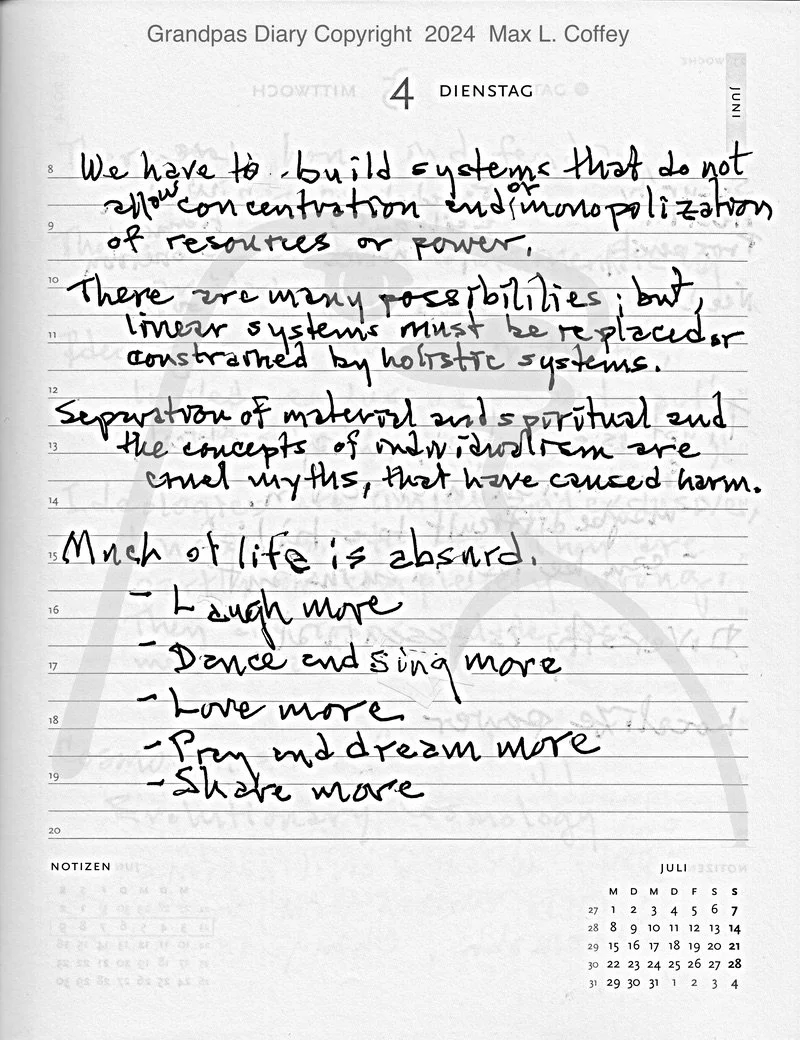 Grandpas Diary Copyright 2024 Max L. Coffey
4 DIENSTAG
JUNI
8 We have to build systems that do not
allow concentration and/or monopolization
9 of resources or power.
10 There are many possibilities; but,
11 linear systems must be replaced or
constrained by holistic systems.
12
Separation of material and spiritual and
13 the concepts of individualism are
cruel myths, that have caused harm.
14
15 Much of life is absurd.
16 - Laugh more
17 - Dance and sing more
18 - Love more
- Pray and dream more
19 - Share more
20
NOTIZEN
JULI
M D M D F S S
27 1 2 3 4 5 6 7
28 8 9 10 11 12 13 14
29 15 16 17 18 19 20 21
30 22 23 24 25 26 27 28
31 29 30 31 1 2 3 4